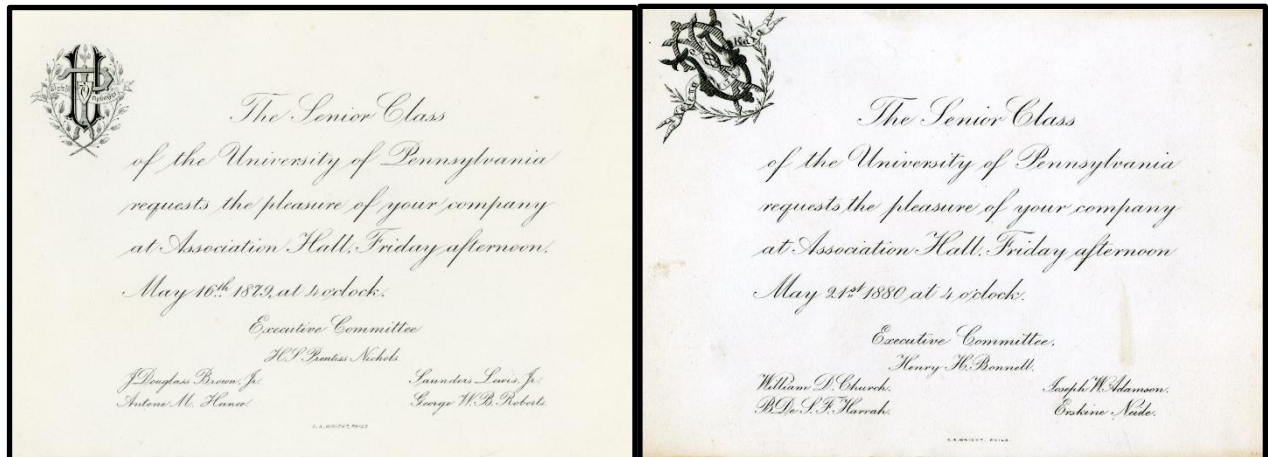 The Senior Class
of the University of Pennsylvania
requests the pleasure of your company
at Association Hall, Friday afternoon,
May 16th 1879, at 4 o'clock.
Executive Committee
H.S. Prentiss Nichols
J. Douglass Brown, Jr.
Saunders Lewis, Jr.
Antone M. Hance
George W. B. Roberts.
C.A. WRIGHT, PHILA
The Senior Class
of the University of Pennsylvania
requests the pleasure of your company
at Association Hall, Friday afternoon
May 21st 1880 at 4 o'clock.
Executive Committee.
Henry H. Bonnell.
William D. Church.
Joseph W. Adamson.
B. De S. F. Harrah.
Erskine Neide.
WRIGHT, PHILA.